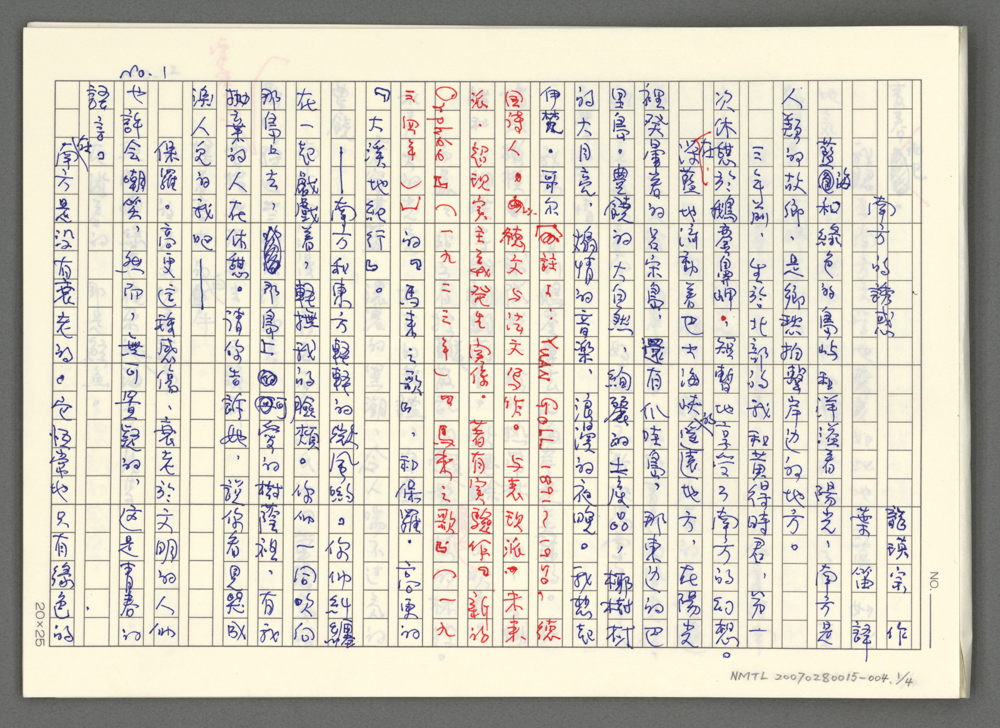 No. 1
南方的誘惑
龍瑛宗 作
葉笛 譯
藍海和綠色的島嶼和洋溢着陽光,南方是
人類的故鄉,是鄉愁拍擊岸边的地方。
三年前,生於北部的我和黃得時君,第一
次休憩於鵝鑾鼻岬。短暫地享受了南方的幻想。
在深藍地流動着巴士海峽的遙遠地方,在陽光
裡癸暈着的呂宋島,還有爪哇島,那東边的巴
里島。豊饒的大自然、絢麗的土產品,椰樹
的大月亮,煽情的音樂,浪漫的夜晚。我想起
伊梵‧哥尔[註1:YUAN GOLL 1891~1950,德
国诗人。以德文与法文写作。与表现派‧未来
派‧超现实主義発生関係。著有実驗作『新的
Orpheo』(一九二三年)『馬來之歌』(一九
三四年)]的『馬來之歌』,和保羅‧高更的
『大溪地紀行』。
——南方和東方輕輕的微風喲。你們糾纏
在一起戲戲着,輕撫我的臉頰。你们一同吹向
那島上去,那島上可愛的樹蔭裡,有我
拋棄的人在休憩。請你告訴她,說你看見哭成
淚人兒的我吧——
保羅‧高更這種感傷,衰老於文明的人们
也許会嘲笑,然而,無可置疑的,這是青春的
語言。
在南方是没有衰老的。它恆常地只有綠色的
NO.
20×25
NMTL 20070280015-004. 1/4